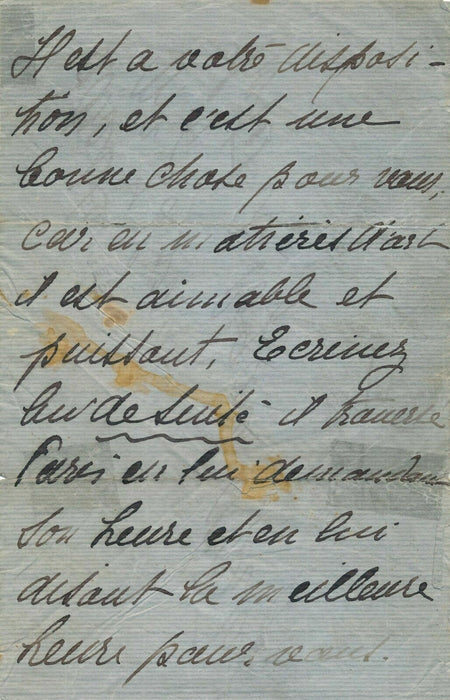 Il est a votre disposi-
tion, et c'est une
bonne chose pour vous,
car en matières d'art
il est aimable et
puissant, Ecrivez
lui de suite il traverse
Paris en lui demandant
son heure et en lui
disant la meilleure
heure pour vous.